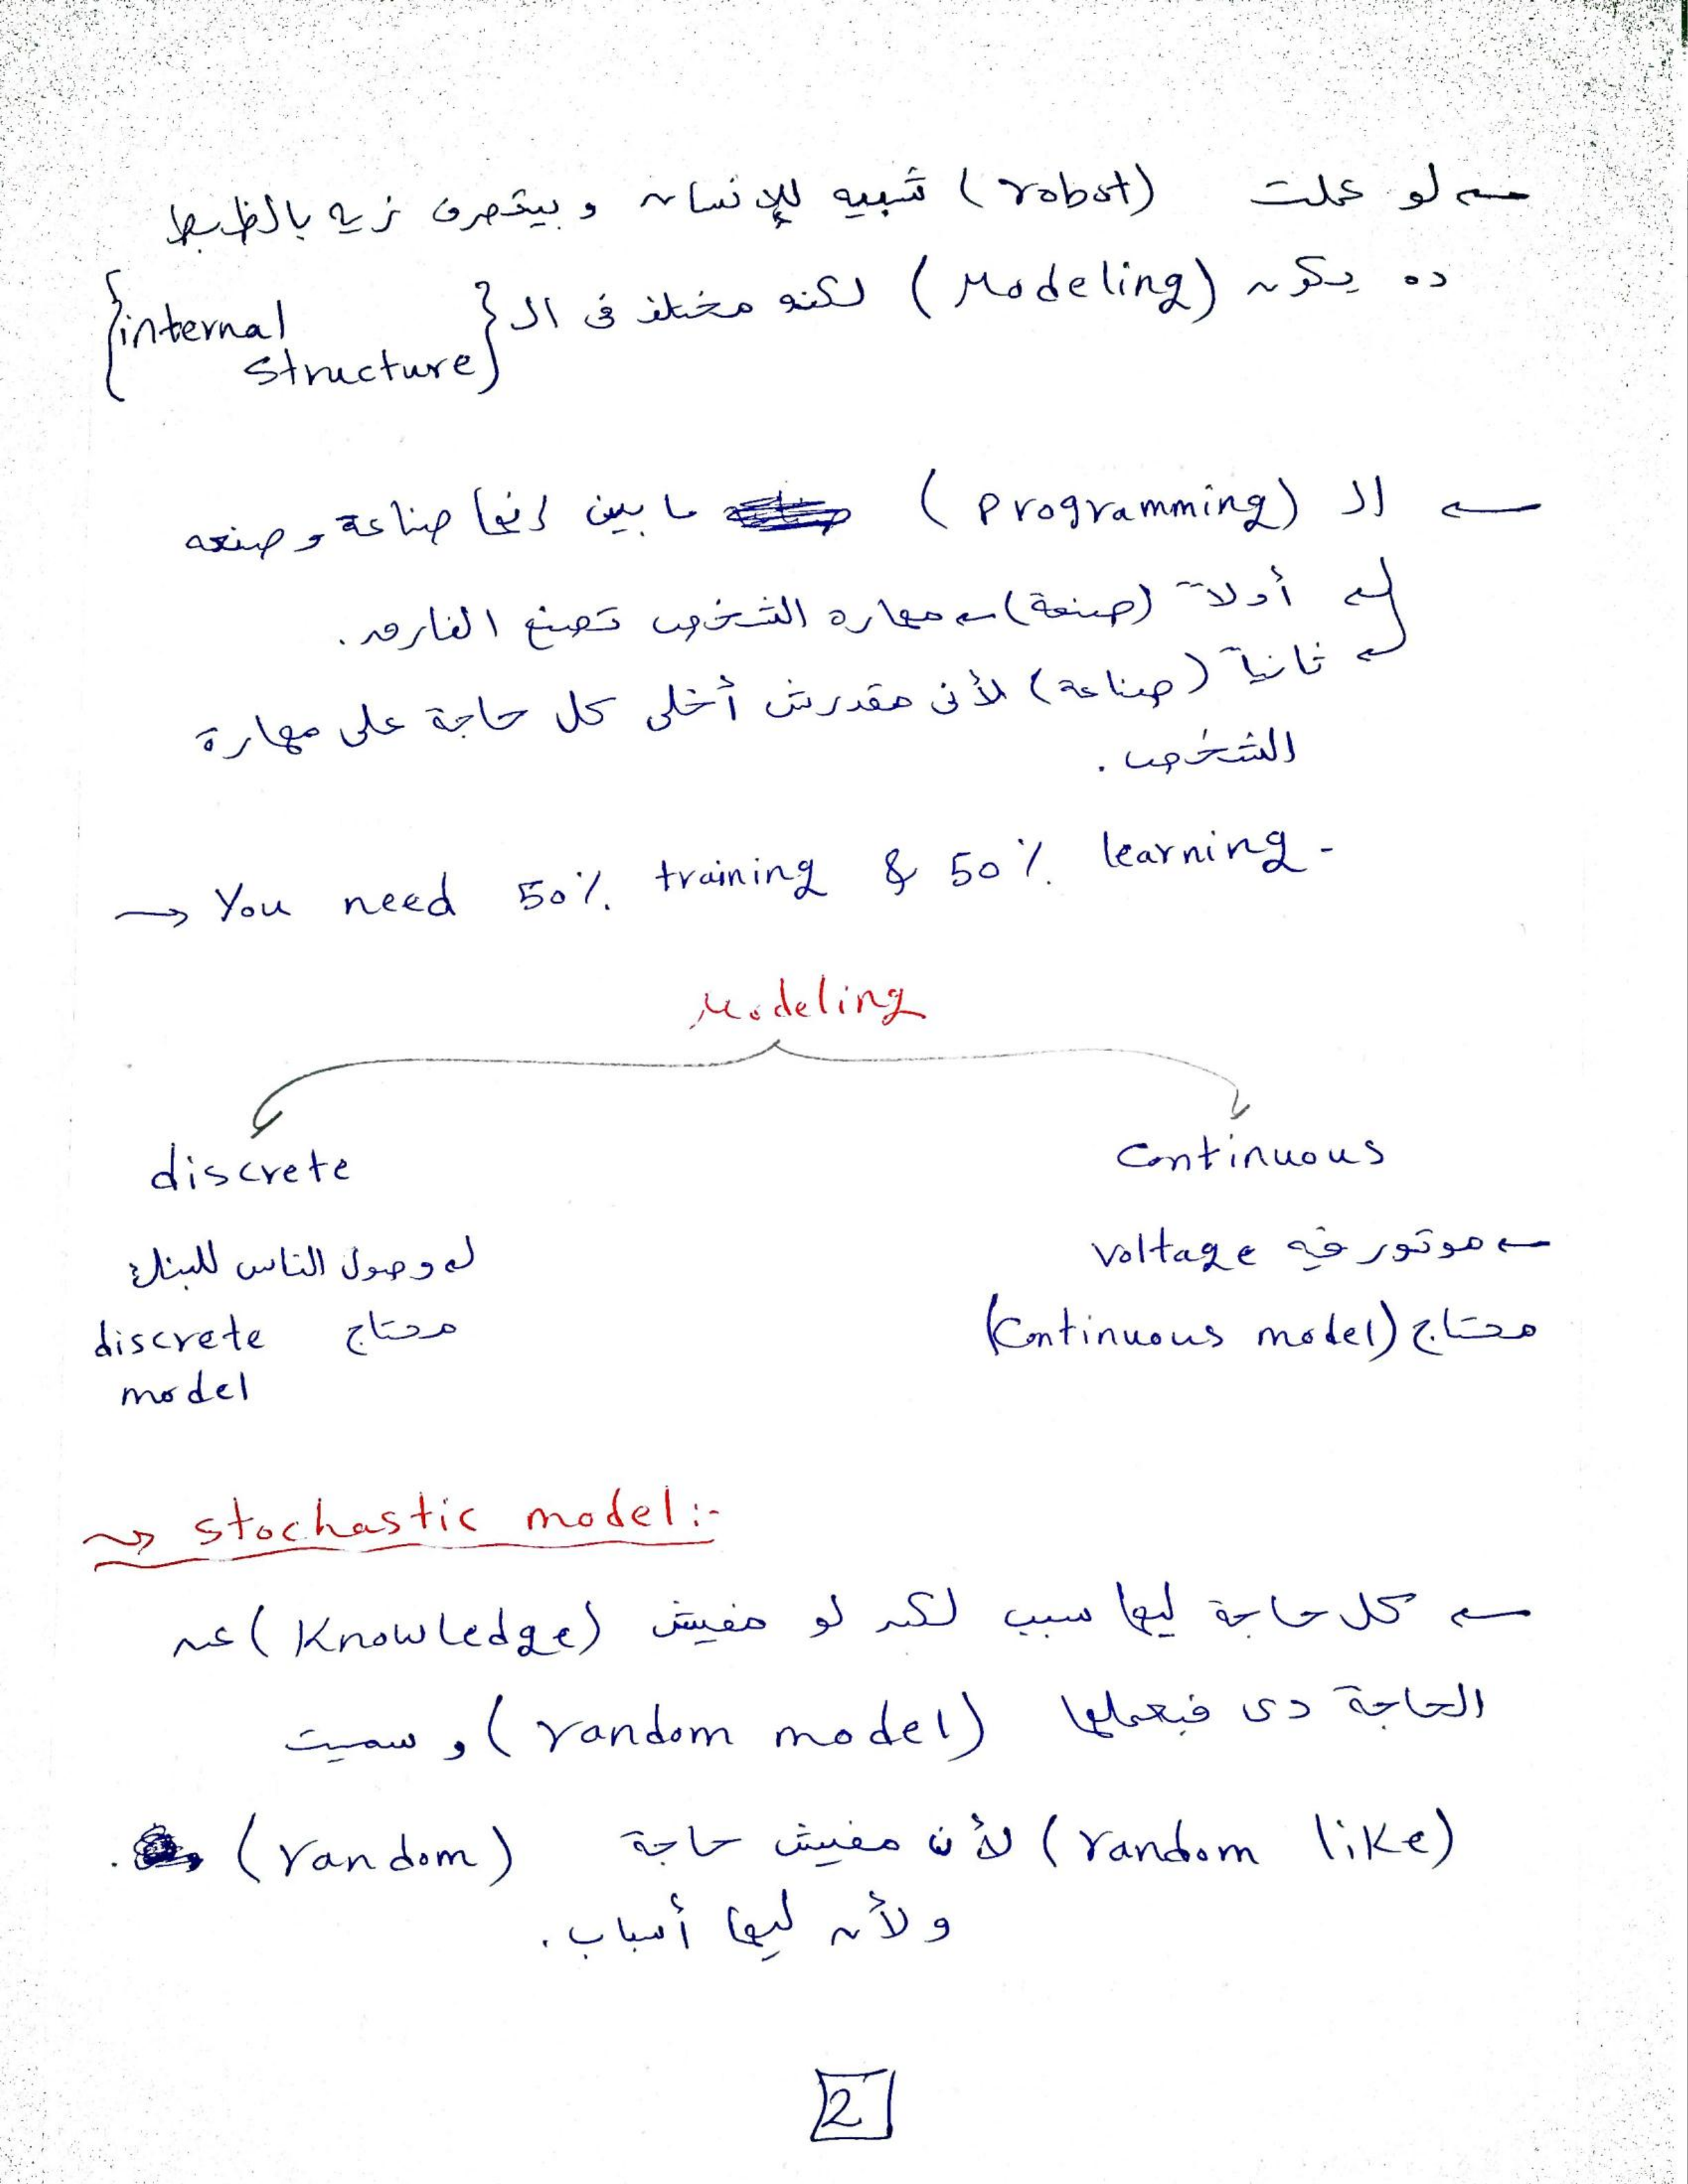 ← لو عملت (robot) شبيه للإنسان و بيتصرف زيه بالظبط
ده يكون (Modeling) لكنه مختلف فى ال {internal
structure}
← ال (programming) ما بين إنها صناعة و صنعه
← أولاً (صنعة) ← مهاره الشخص تصنع الفارق.
← ثانياً (صناعة) لأنى مقدرش أخلى كل حاجة على مهارة
الشخص.
→ You need 50% training & 50% learning -
Modeling
discrete
continuous
وصول الناس للبنك
← موتور فيه voltage
محتاج discrete
model
محتاج (continuous model)
→ stochastic model:-
← كل حاجة ليها سبب لكن لو مفيش (Knowledge) عن
الحاجة دى فبعملها (random model) و سميت
(random like) لأن مفيش حاجة (random) .
و لأن ليها أسباب.
2